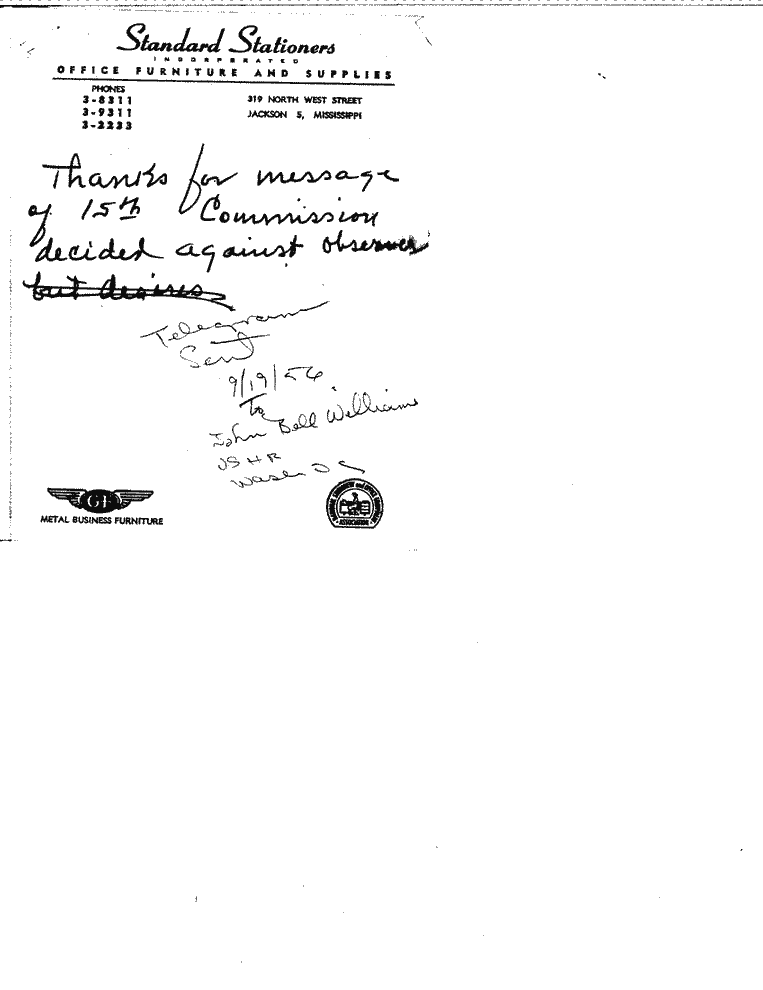 Standard Stationers
INCORPORATED
OFFICE FURNITURE AND SUPPLIES
PHONES
3-8311
3-9311
3-2233
319 NORTH WEST STREET
JACKSON 5, MISSISSIPPI
Thanks for message
of 15th Commission
decided against observer
but desires
Telegram
Sent
9/19/56
To
John Bell Williams
US HR
Wash DC
GF
METAL BUSINESS FURNITURE
ASSOCIATION